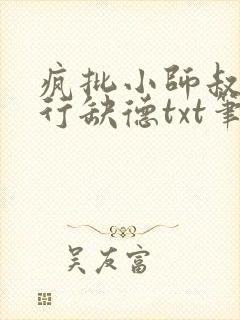 疯批小师叔
行缺德txt笔
吴友富